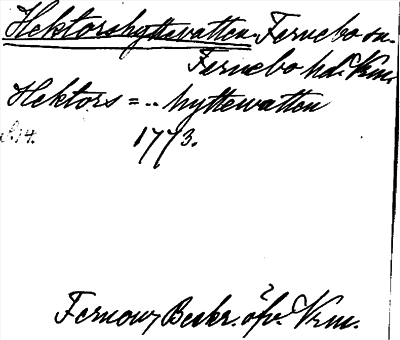 Hektorshyttewatten Fernebo sn.
Fernebo hd. Vrm.
Hektors = .. hyttewatten
s. 14. 1773.
Fernow, Beskr. öfv. Vrm.